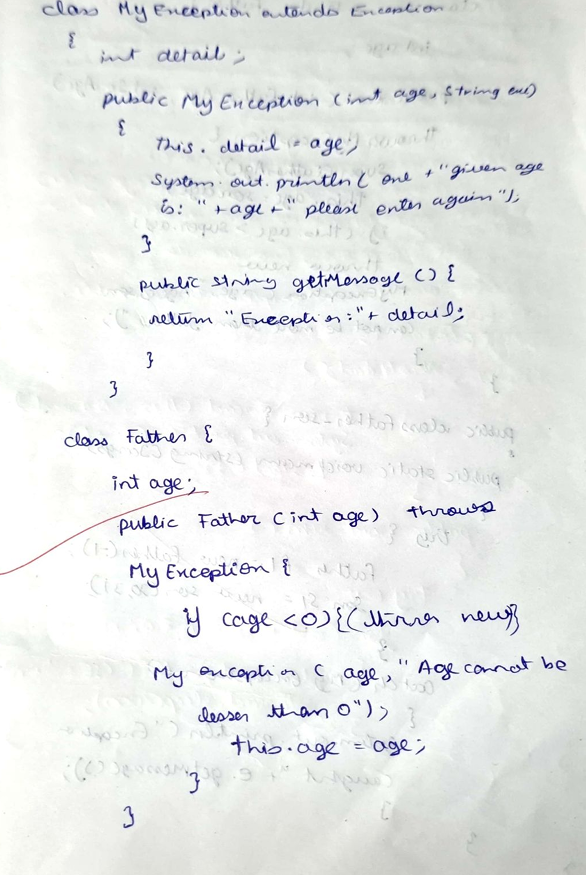 class My Exception extends Exception
{
int detail;
public My Exception (int age, String exe)
{
this. detail = age;
System. out. println ( one + "given age
is: " + age + " please enter again");
}
public string getMessage () {
return "Exception:" + detail;
}
}
class Father {
int age;
public Father (int age) throws
My Exception {
if (age < 0) { (throw new}
My exception ( age, " Age cannot be
lesser than 0");
this.age = age;
}
}